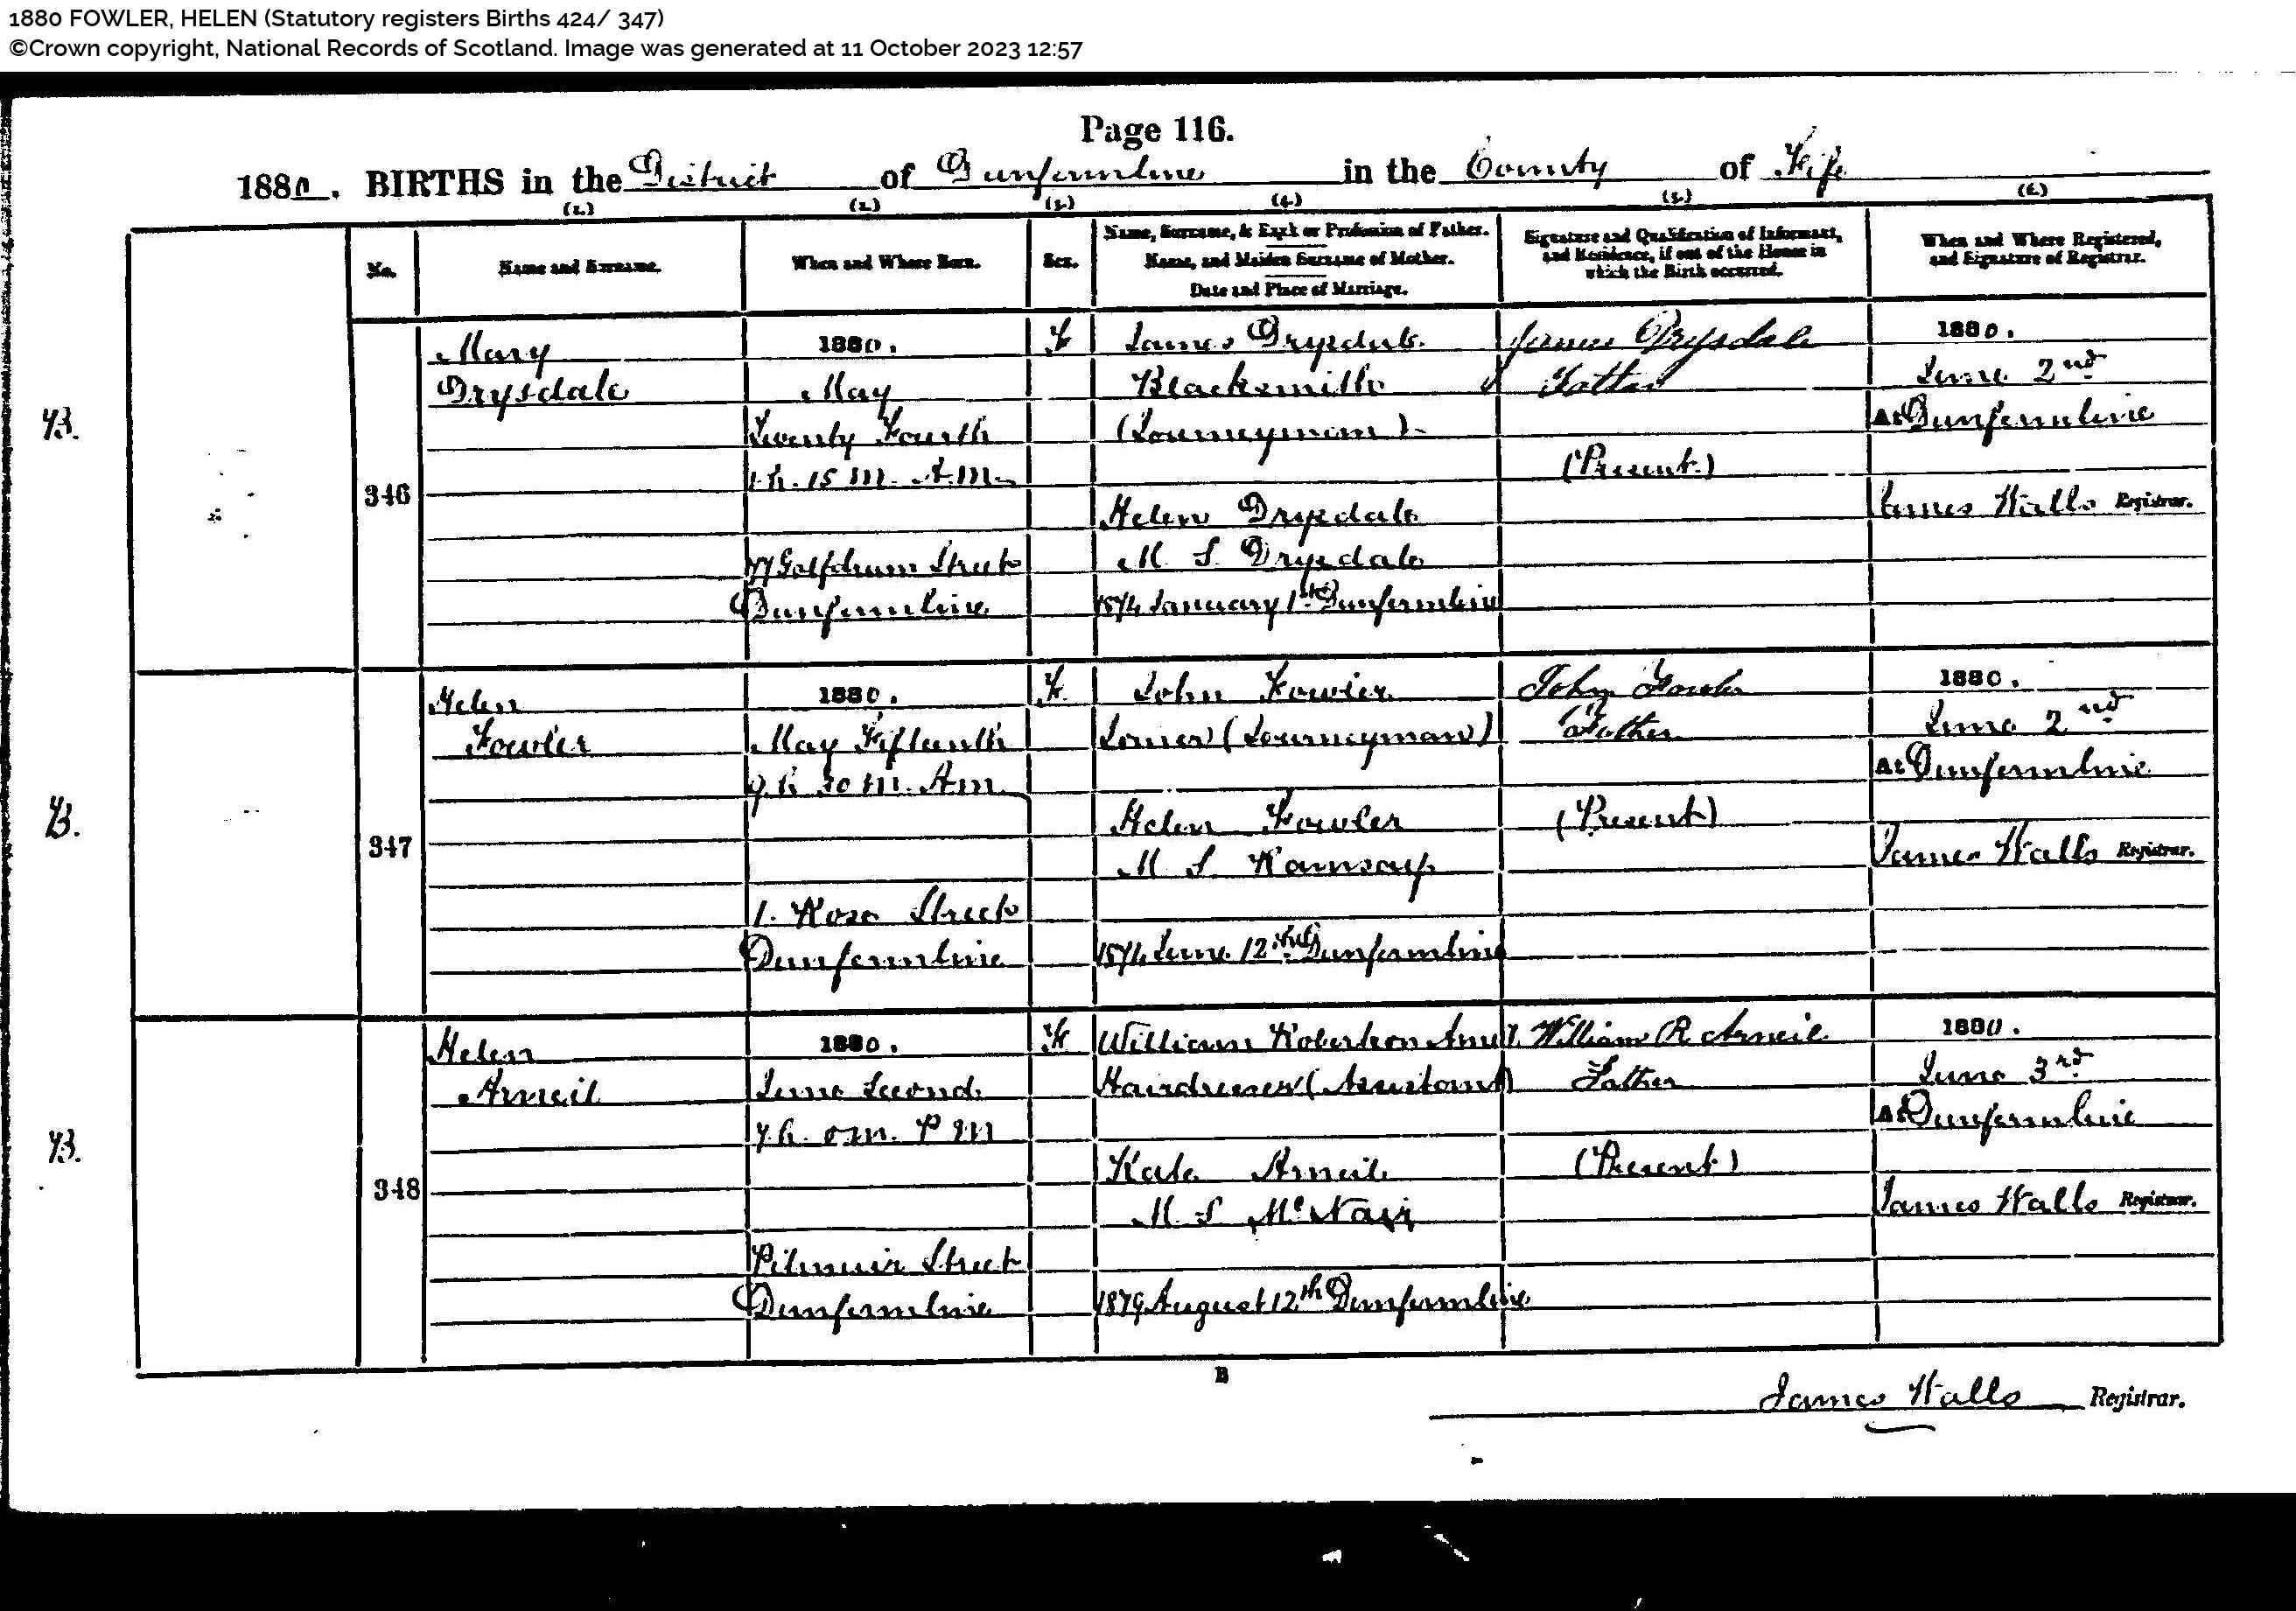 1880 FOWLER, HELEN (Statutory registers Births 424/ 347)
©Crown copyright, National Records of Scotland. Image was generated at 11 October 2023 12:57
Page 116.
1880. BIRTHS in the District of Dunfermline in the County of Fife
(1.) (2.) (3.) (4.) (5.) (6.)
No.
Name and Surname.
When and Where Born.
Sex.
Name, Surname, & Rank or Profession of Father.
Name, and Maiden Surname of Mother.
Date and Place of Marriage.
Signature and Qualification of Informant,
and Residence, if out of the House in
which the Birth occurred.
When and Where Registered,
and Signature of Registrar.
346
Mary
Drysdale
1880.
May
Twenty Fourth
1 h. 15 m. A.M.
77 Golfdrum Street
Dunfermline
F
James Drysdale
Blacksmith
(Journeyman)
Helen Drysdale
M. S. Drysdale
1874 January 1st Dunfermline
James Drysdale
Father
(Present)
1880.
June 2nd
At Dunfermline
James Walls Registrar.
347
Helen
Fowler
1880.
May Fifteenth
9 h 30 m. A.m.
1. Rose Street
Dunfermline
F.
John Fowler
Joiner (Journeyman)
Helen Fowler
M. S. Ramsay
1874 June 12th Dunfermline
John Fowler
Father
(Present)
1880.
June 2nd
At Dunfermline
James Walls Registrar.
348
Helen
Arneil
1880.
June Second
7 h. 0 m. P M
Pilmuir Street
Dunfermline
F
William Robertson Arneil
Hairdresser (Assistant)
Kate Arneil
M. S. McNair
1879 August 12th Dunfermline
William R Arneil
Father
(Present)
1880.
June 3rd
At Dunfermline
James Walls Registrar.
B
James Walls Registrar.